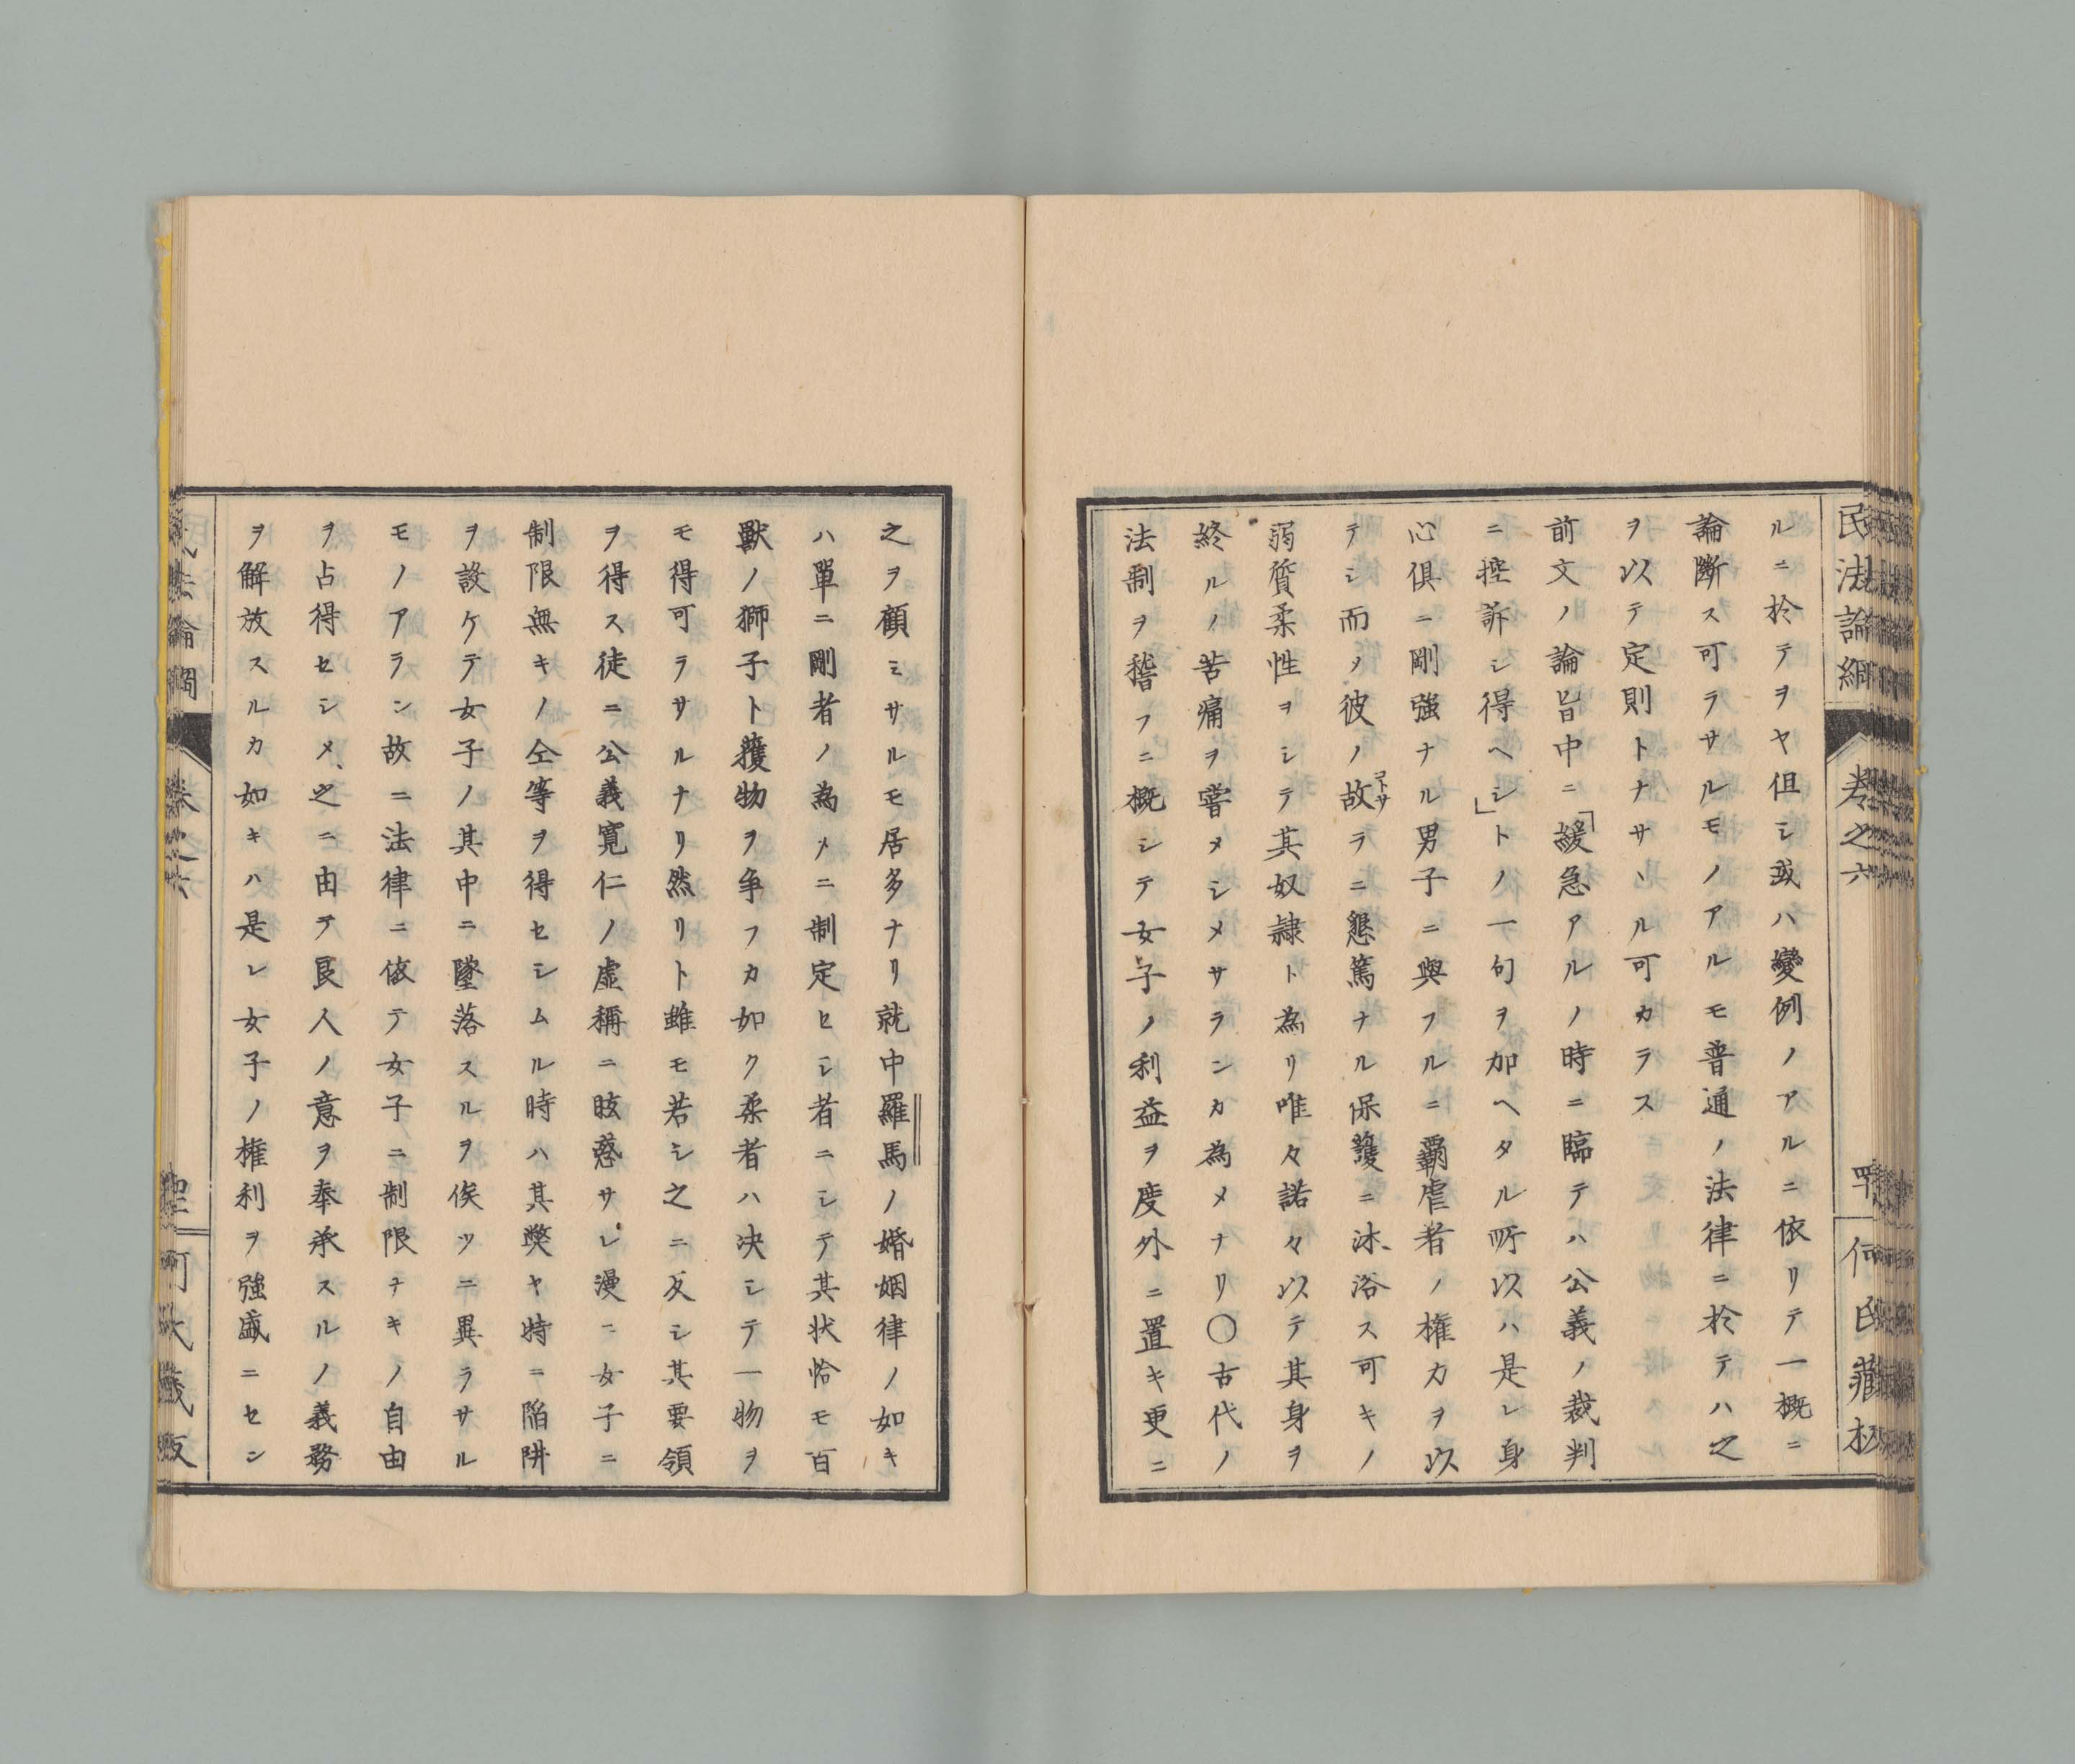 民法論綱 卷之六 何氏藏板
ルニ於テヲヤ但シ或ハ變例ノアルニ依リテ一概ニ
論斷ス可ラサルモノアルモ普通ノ法律ニ於テハ之
ヲ以テ定則トナサヽル可カラス
前文ノ論旨中ニ「緩急アルノ時ニ臨テハ公義ノ裁判
ニ控訴シ得ヘシ」トノ一句ヲ加ヘタル所以ハ是レ身
心俱ニ剛強ナル男子ニ與フルニ覇虐者ノ權力ヲ以
テシ而メ彼ノ故コトサラニ懇篤ナル保護ニ沐浴ス可キノ
弱質柔性ヲシテ其奴隷ト為リ唯々諾々以テ其身ヲ
終ルノ苦痛ヲ嘗メシメサランカ為メナリ〇古代ノ
法制ヲ稽フニ概シテ女子ノ利益ヲ度外ニ置キ更ニ
之ヲ顧ミサルモ居多ナリ就中羅馬ノ婚姻律ノ如キ
ハ單ニ剛者ノ為メニ制定セシ者ニシテ其状恰モ百
獸ノ獅子ト獲物ヲ争フカ如ク柔者ハ决シテ一物ヲ
モ得可ラサルナリ然リト雖モ若シ之ニ反シ其要領
ヲ得ス徒ニ公義寛仁ノ虚稱ニ眩惑サレ漫ニ女子ニ
制限無キノ仝等ヲ得セシムル時ハ其獘ヤ特ニ陥阱
ヲ設ケテ女子ノ其中ニ墜落スルヲ俟ツニ異ラサル
モノアラン故ニ法律ニ依テ女子ニ制限ナキノ自由
ヲ占得セシメ之ニ由テ良人ノ意ヲ奉承スルノ義務
ヲ解放スルカ如キハ是レ女子ノ權利ヲ強盛ニセン